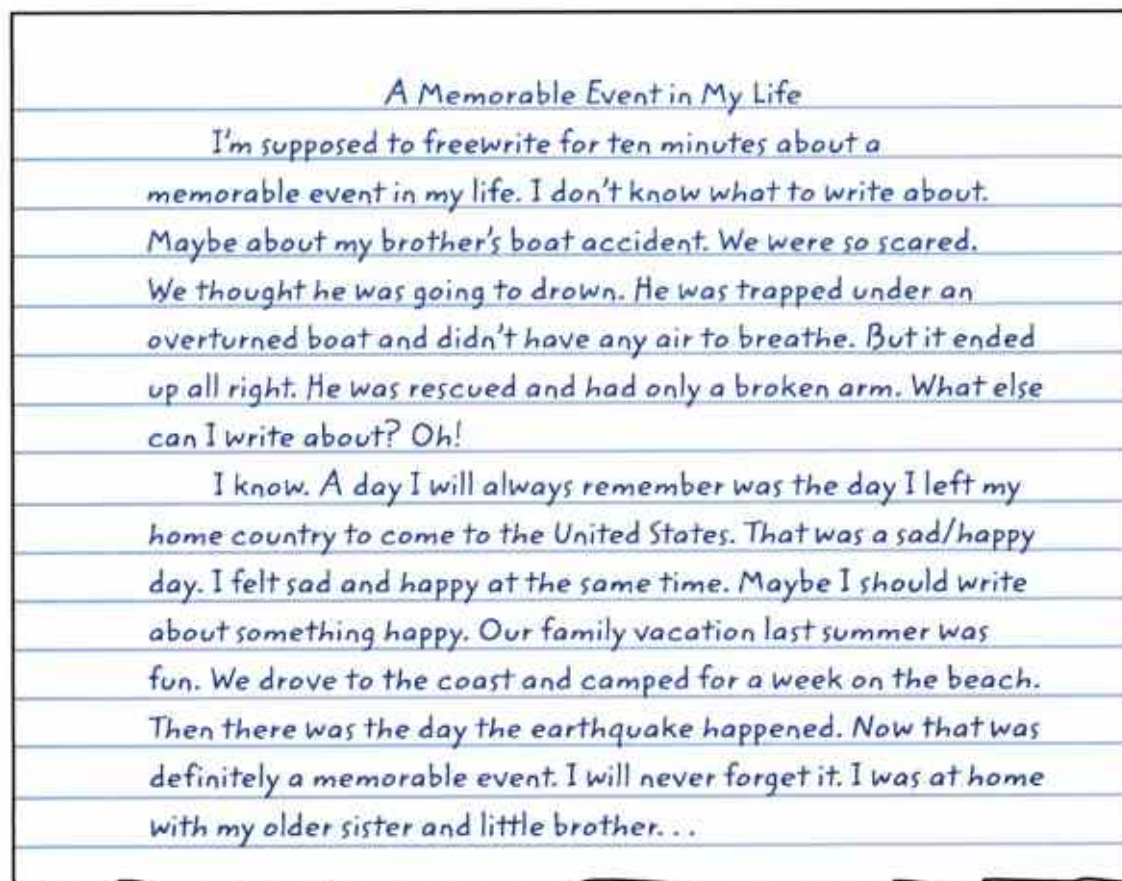 A Memorable Event in My Life
I'm supposed to freewrite for ten minutes about a
memorable event in my life. I don't know what to write about.
Maybe about my brother's boat accident. We were so scared.
We thought he was going to drown. He was trapped under an
overturned boat and didn't have any air to breathe. But it ended
up all right. He was rescued and had only a broken arm. What else
can I write about? Oh!
I know. A day I will always remember was the day I left my
home country to come to the United States. That was a sad/happy
day. I felt sad and happy at the same time. Maybe I should write
about something happy. Our family vacation last summer was
fun. We drove to the coast and camped for a week on the beach.
Then there was the day the earthquake happened. Now that was
definitely a memorable event. I will never forget it. I was at home
with my older sister and little brother. . .